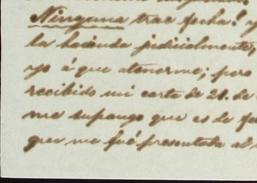 Ninguna trae fecha: y
la hacienda judicialmente,
yo á que atenerme; pero
recibido mi carta de 21. de
me supongo que es de
que me fué presentada al